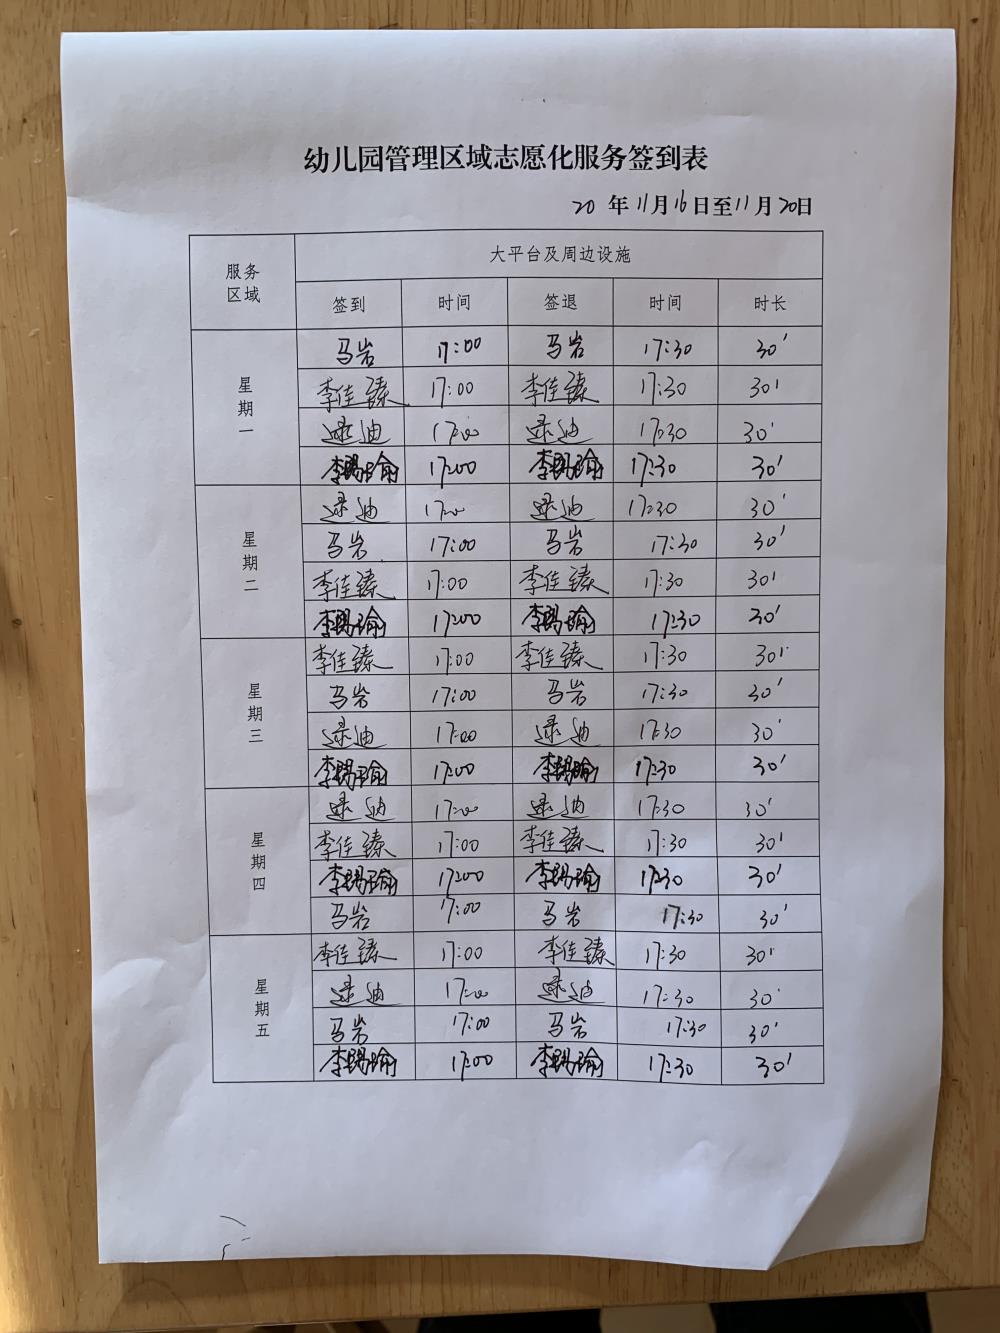 幼儿园管理区域志愿化服务签到表
20 年 11月 16日至 11月 20日
服务区域 大平台及周边设施
签到 时间 签退 时间 时长
星期一
马岩 17:00 马岩 17:30 30'
李佳臻 17:00 李佳臻 17:30 30'
逯迪 17:00 逯迪 17:30 30'
李赐瑜 17:00 李赐瑜 17:30 30'
星期二
逯迪 17:00 逯迪 17:30 30'
马岩 17:00 马岩 17:30 30'
李佳臻 17:00 李佳臻 17:30 30'
李赐瑜 17:00 李赐瑜 17:30 30'
星期三
李佳臻 17:00 李佳臻 17:30 30'
马岩 17:00 马岩 17:30 30'
逯迪 17:00 逯迪 17:30 30'
李赐瑜 17:00 李赐瑜 17:30 30'
星期四
逯迪 17:00 逯迪 17:30 30'
李佳臻 17:00 李佳臻 17:30 30'
李赐瑜 17:00 李赐瑜 17:30 30'
马岩 17:00 马岩 17:30 30'
星期五
李佳臻 17:00 李佳臻 17:30 30'
逯迪 17:00 逯迪 17:30 30'
马岩 17:00 马岩 17:30 30'
李赐瑜 17:00 李赐瑜 17:30 30'